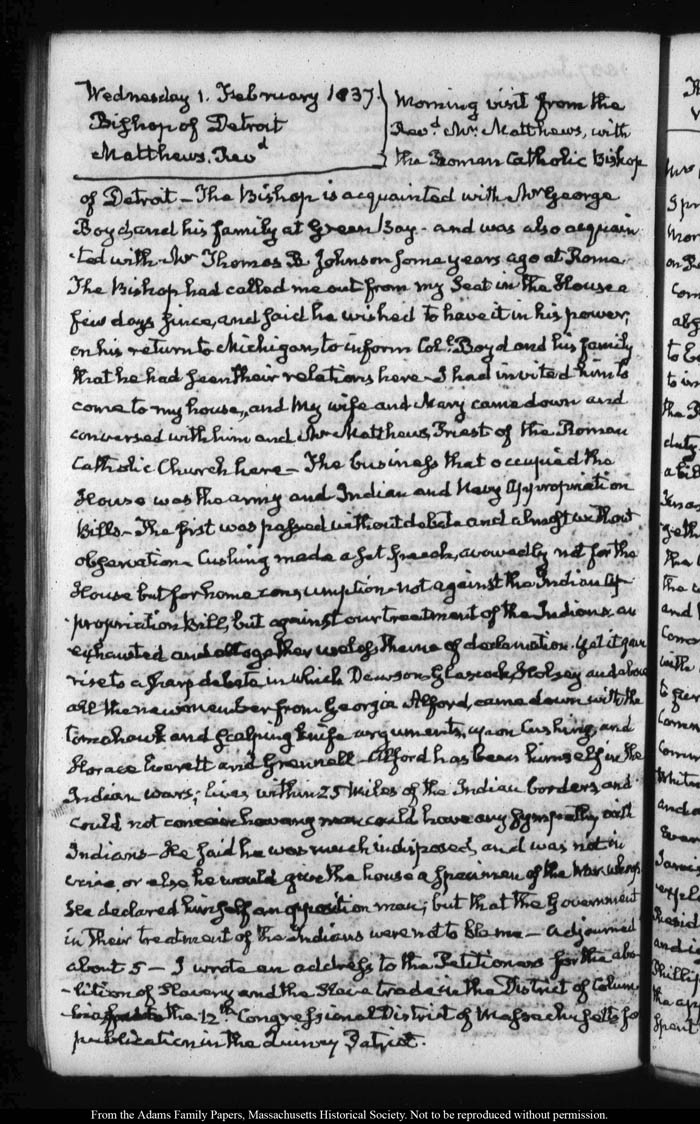 Wednesday 1. February 1837.
Bishop of Detroit
Matthews. Revd
Morning visit from the
Revd Mr. Matthews, with
the Roman Catholic Bishop
of Detroit — The Bishop is acquainted with Mr George
Boyd, and his family at Green Bay - and was also acquain
-ted with Mr Thomas B. Johnson some years ago at Rome.
The Bishop had called me out from my seat in the House a
few days since, and said he wished to have it in his power,
on his return to Michigan, to inform Col. Boyd and his family
that he had seen their relations here. I had invited him to
come to my house, and my wife and Mary came down and
conversed with him and Mr Matthews, Priest of the Roman
Catholic Church here — The business that occupied the
House was the army and Indian and Navy Appropriation
Bills — The first was passed without debate and almost without
observation. Cushing made a set speech, avowedly not for the
House but for home consumption — not against the Indian Ap
-propriation Bill, but against our treatment of the Indians. an
exhausted and altogether useless theme of declamation. Yet it gave
rise to a sharp debate in which Dawson, Glascock, Holsey and above
all the new member from Georgia Alford, came down with the
tomahawk and scalping knife arguments, upon Cushing, and
Horace Everett and Grennell — Alford has been himself in the
Indian wars; lives within 25 miles of the Indian borders, and
could not conceive how any man could have any sympathy with
Indians — He said he was much indisposed, and was not in
voice, or else he would give the house a specimen of the War whoop
He declared himself an opposition man; but that the Government
in their treatment of the Indians were not to blame — adjourned
about 5 — I wrote an address to the Petitioners for the abo
-lition of Slavery and the Slave trade in the District of Colum
-bia the 12th Congressional District of Massachusetts for
publication in the Quincy Patriot.
From the Adams Family Papers, Massachusetts Historical Society. Not to be reproduced without permission.